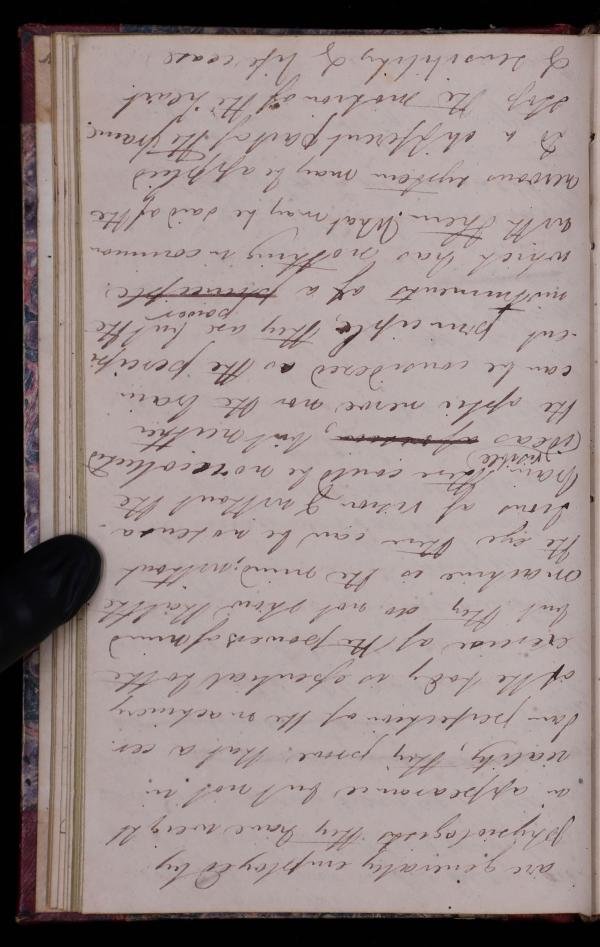 are generally employed by
physiologists they have weight
in appearance but not in
reality, they prove that a cer-
tain perfection of the machinery
of the body is essential to the
exercise of the powers of mind
but they do not show that the
machine is the mind; without
the eye there can be no sensa-
tions of vision & without the
brain there could be no recollected
visible
ideas, but neither
the optic nerve nor the brain
can be considered as the percipi-
ent principle, they are but the
instruments of a principle power
which has nothing in common
with them. What may be said of the
nervous system may be applied
to a different part of the frame,
stop the motion of the heart
& sensibility & life cease